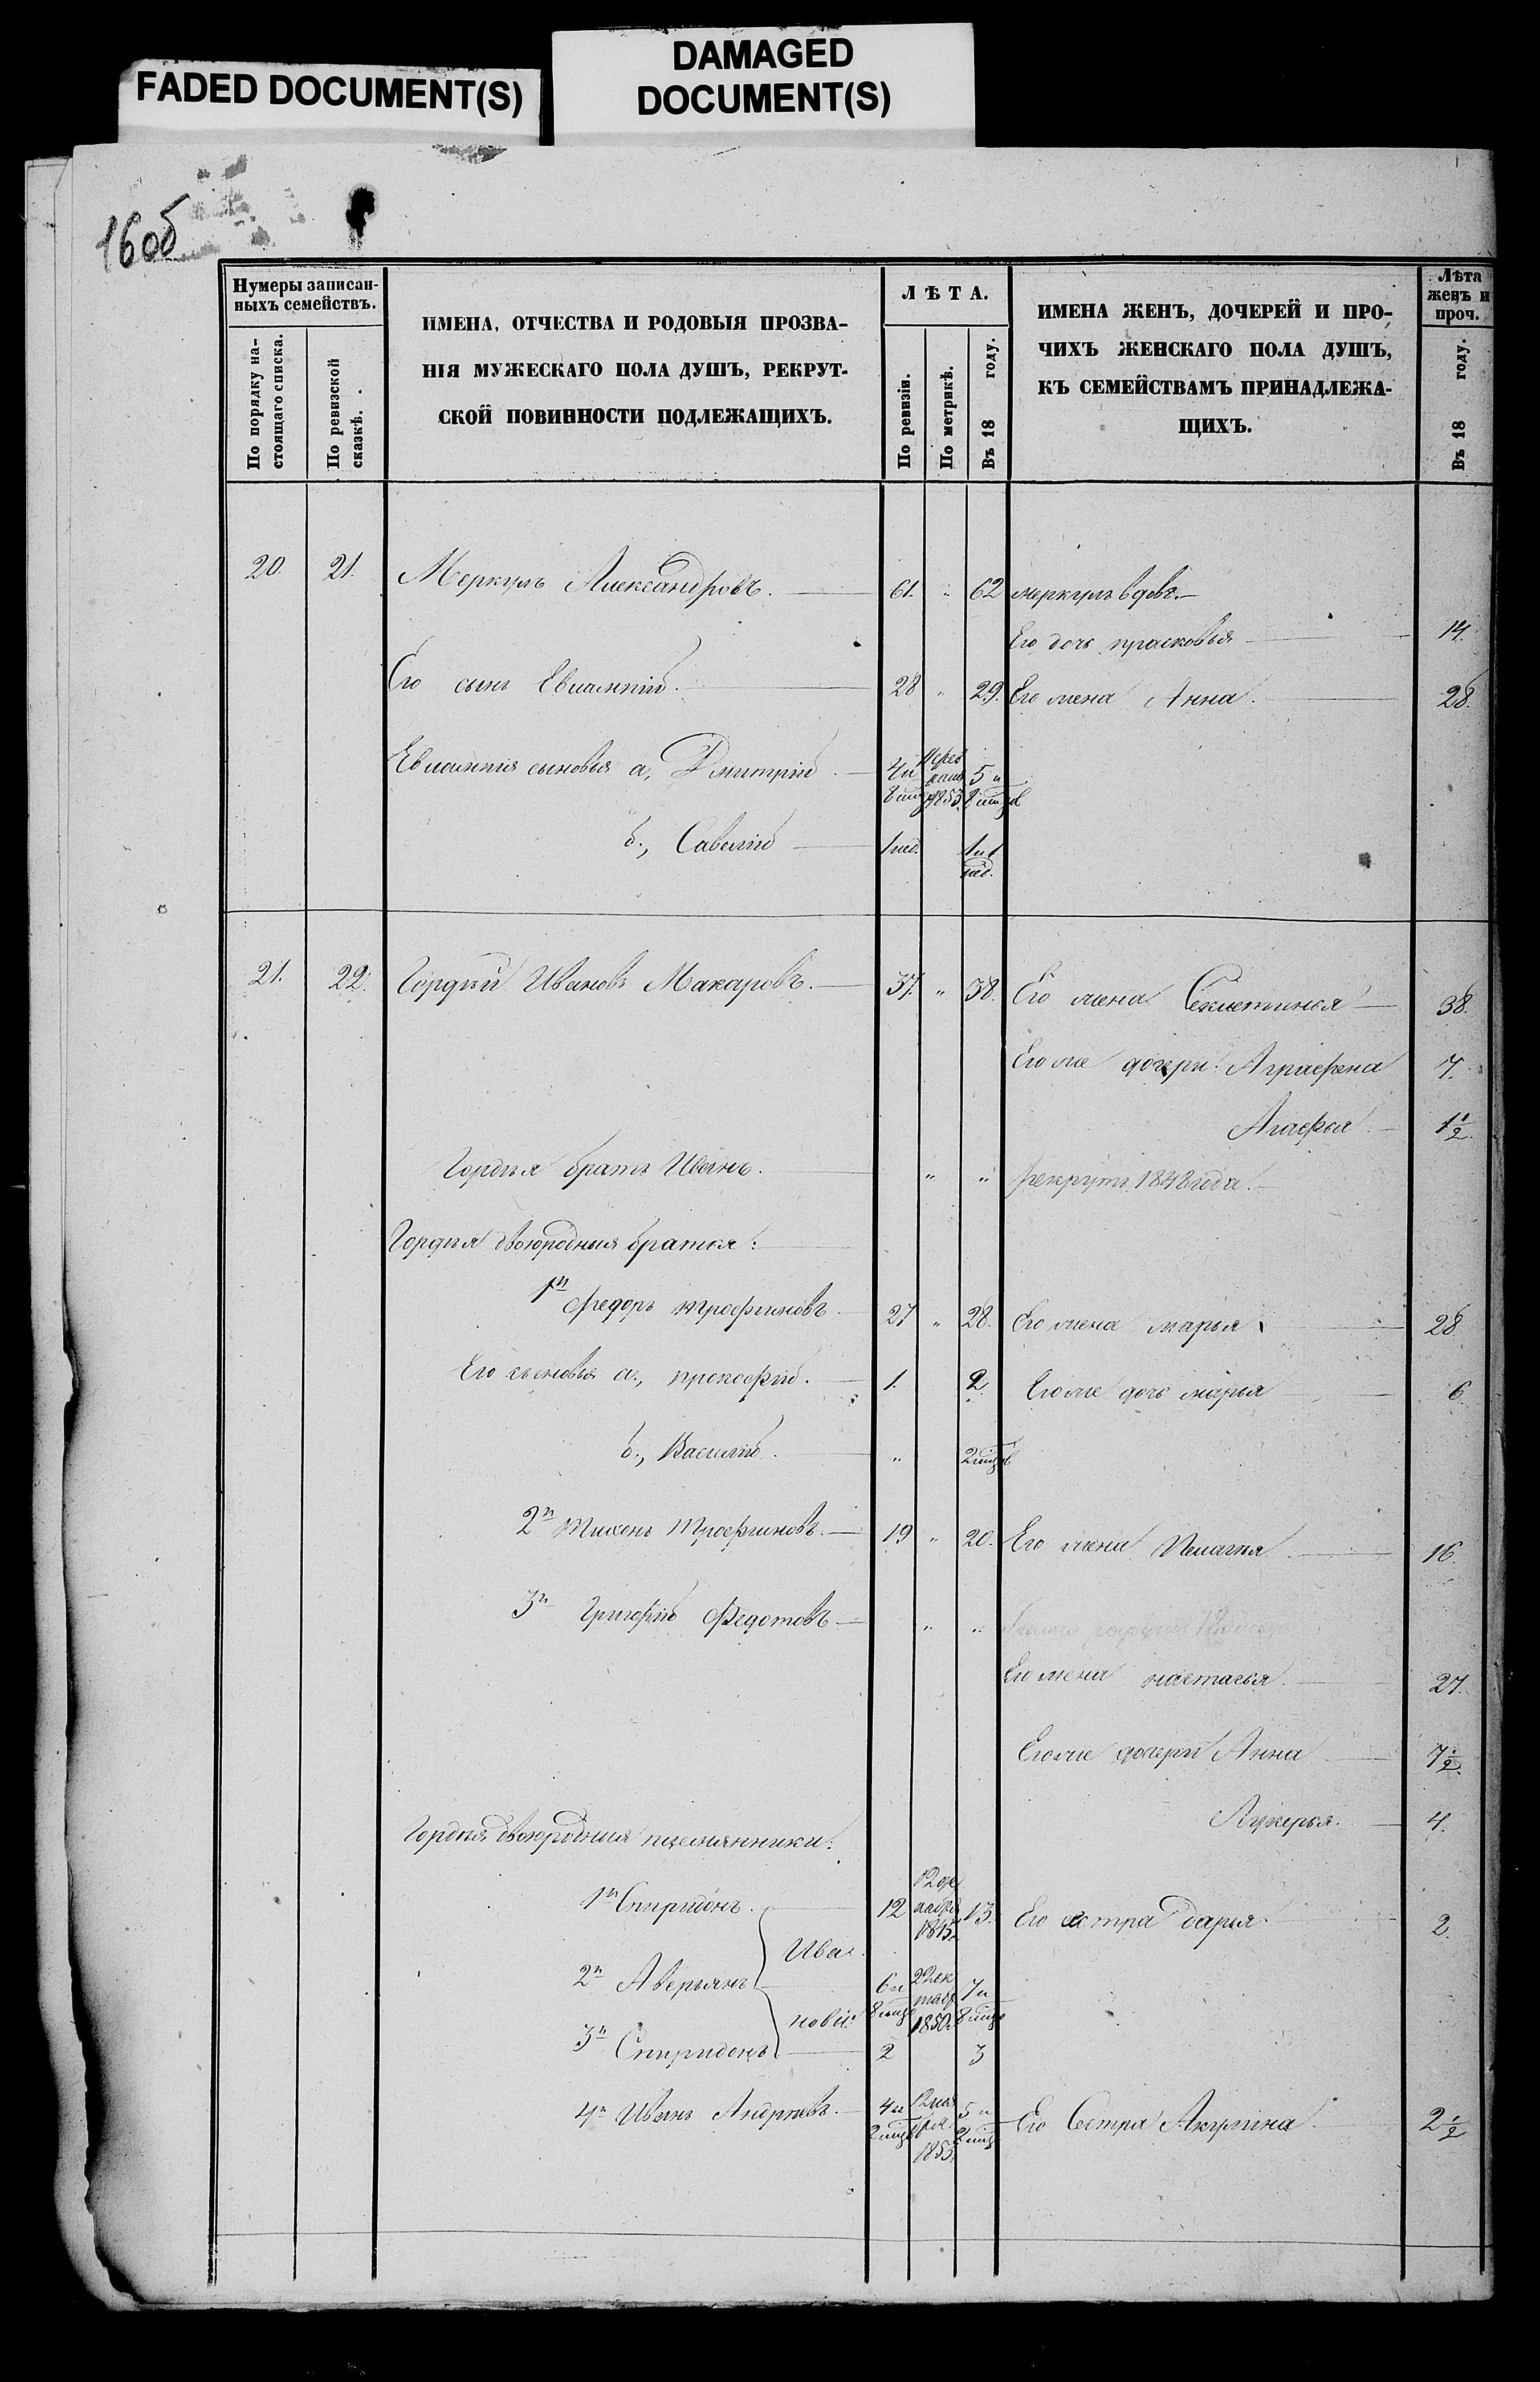 FADED DOCUMENT(S)
DAMAGED
DOCUMENT(S)
16об
Нумеры записан-
ныхъ семействъ.
По порядку на-
стоящаго списка.
По ревизской
сказкѣ.
ИМЕНА, ОТЧЕСТВА И РОДОВЫЯ ПРОЗВА-
НІЯ МУЖЕСКАГО ПОЛА ДУШЪ, РЕКРУТ-
СКОЙ ПОВИННОСТИ ПОДЛЕЖАЩИХЪ.
ЛѢТА.
По ревизіи.
По метрикѣ.
Въ 18 году.
ИМЕНА ЖЕНЪ, ДОЧЕРЕЙ И ПРО-
ЧИХЪ ЖЕНСКАГО ПОЛА ДУШЪ,
КЪ СЕМЕЙСТВАМЪ ПРИНАДЛЕЖА-
ЩИХЪ.
Лѣта
женъ и
проч.
Въ 18 году.
20. 21. Меркулъ Александровъ. 61. " 62 меркулъ вдовъ.
Его дочь прасковья 14.
Его сынъ Евлампій. 28 " 29. Его жена Анна. 28.
Евлампія сыновья а, Дмитрій 4 и 8 мцовъ 1853 5 и 8 мцовъ
б., Савелій 1 нед. 1 и 1 нед.
21. 22. Гордѣй Ивановъ Макаровъ. 37. " 38. Его жена Секлетинья 38.
Его же дочери: Аграфена 7.
Агафья 1 1/2
Гордѣя братъ Иванъ. " " рекрутъ 1848 года.
Гордѣя двоюродныя братья:
1й Федоръ трофимовъ 27 " 28. Его жена марья 28
Его сыновья а., прокофій. 1. 2 Его же дочь марья 6.
б., Василій. " 2 мцовъ
2й Тихонъ Трофимовъ. 19 " 20. Его жена Пелагѣя 16.
3й Григорій Федотовъ " "
Его жена настасья. 27.
Его же дочери Анна 7 1/2.
Лукерья. 4.
Гордѣя двоюродныя племянники:
1й Спиридонъ. 12 12 декабря 1845. 13. Его сестра дарья. 2.
Ива
2й Аверьянъ 6 и 8 мцов 1850 7 и 8 мцов
новы.
3й Спиридонъ 2 3
4й Иванъ Андрѣевъ. 4 и 2 мцов 1853 5 и 2 мцов Его Сестра Акулина 2 1/2